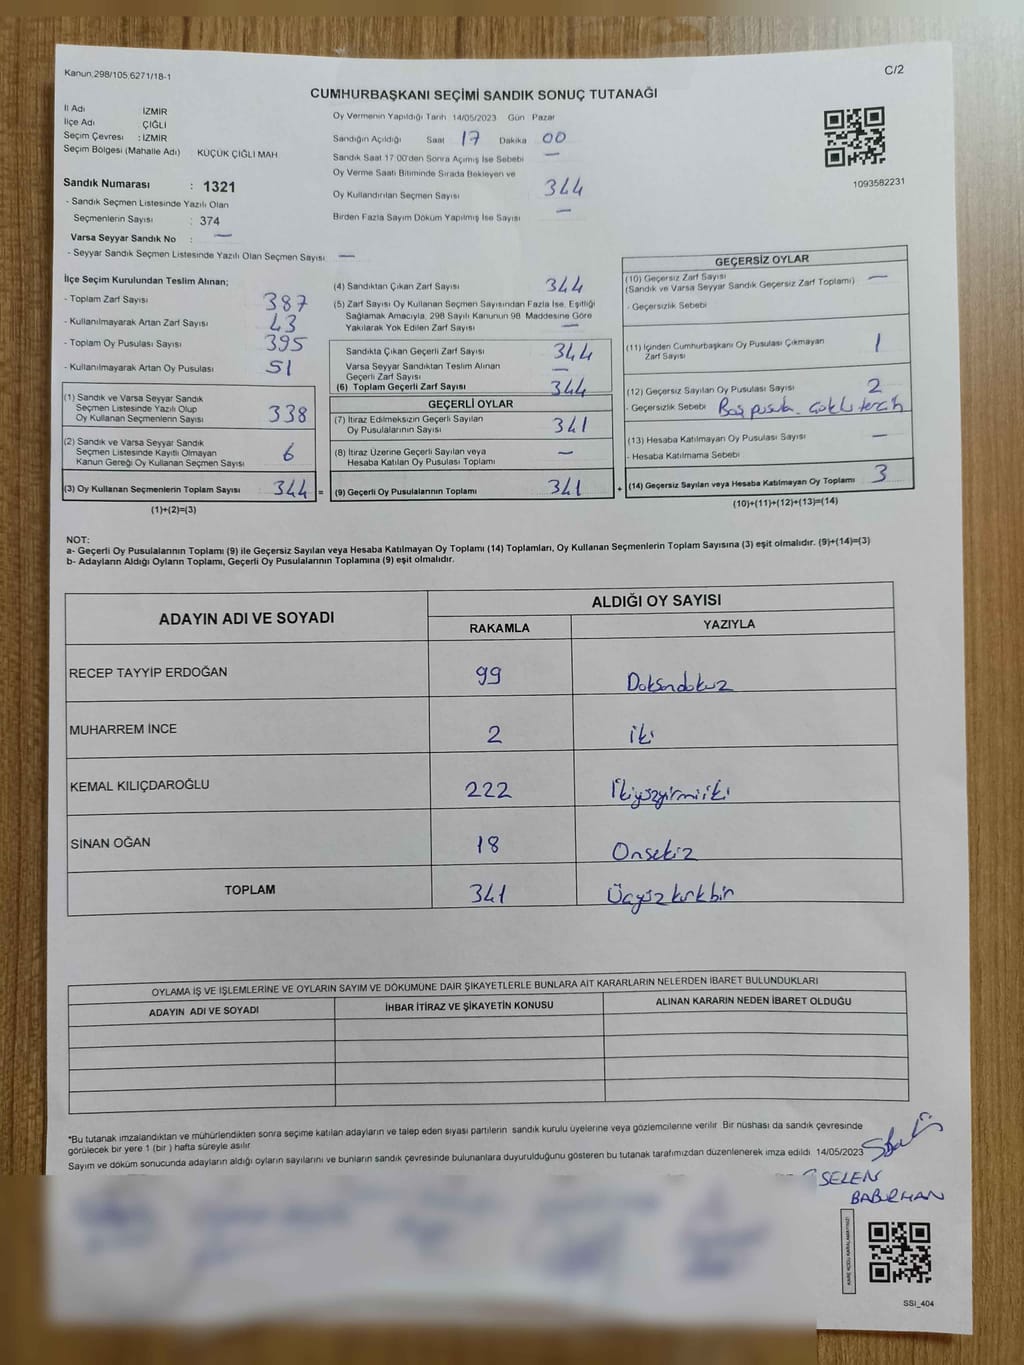 Kanun;298/105,6271/18-1
C/2
CUMHURBAŞKANI SEÇİMİ SANDIK SONUÇ TUTANAĞI
İl Adı İZMİR
İlçe Adı ÇİĞLİ
Seçim Çevresi : İZMİR
Seçim Bölgesi (Mahalle Adı) KÜÇÜK ÇİĞLİ MAH
Sandık Numarası : 1321
- Sandık Seçmen Listesinde Yazılı Olan
Seçmenlerin Sayısı : 374
Varsa Seyyar Sandık No : —
- Seyyar Sandık Seçmen Listesinde Yazılı Olan Seçmen Sayısı —
Oy Vermenin Yapıldığı Tarih 14/05/2023 Gün Pazar
Sandığın Açıldığı Saat 17 Dakika 00
Sandık Saat 17:00'den Sonra Açılmış İse Sebebi —
Oy Verme Saati Bitiminde Sırada Bekleyen ve
Oy Kullandırılan Seçmen Sayısı 344
Birden Fazla Sayım Döküm Yapılmış İse Sayısı —
1093582231
İlçe Seçim Kurulundan Teslim Alınan;
- Toplam Zarf Sayısı 387
- Kullanılmayarak Artan Zarf Sayısı 43
- Toplam Oy Pusulası Sayısı 395
- Kullanılmayarak Artan Oy Pusulası 51
(1) Sandık ve Varsa Seyyar Sandık
Seçmen Listesinde Yazılı Olup
Oy Kullanan Seçmenlerin Sayısı 338
(2) Sandık ve Varsa Seyyar Sandık
Seçmen Listesinde Kayıtlı Olmayan
Kanun Gereği Oy Kullanan Seçmen Sayısı 6
(3) Oy Kullanan Seçmenlerin Toplam Sayısı 344 =
(1)+(2)=(3)
(4) Sandıktan Çıkan Zarf Sayısı 344
(5) Zarf Sayısı Oy Kullanan Seçmen Sayısından Fazla İse, Eşitliği
Sağlamak Amacıyla, 298 Sayılı Kanunun 98. Maddesine Göre
Yakılarak Yok Edilen Zarf Sayısı —
Sandıkta Çıkan Geçerli Zarf Sayısı 344
Varsa Seyyar Sandıktan Teslim Alınan
Geçerli Zarf Sayısı —
(6) Toplam Geçerli Zarf Sayısı 344
GEÇERLİ OYLAR
(7) İtiraz Edilmeksizin Geçerli Sayılan
Oy Pusulalarının Sayısı 341
(8) İtiraz Üzerine Geçerli Sayılan veya
Hesaba Katılan Oy Pusulası Toplamı —
(9) Geçerli Oy Pusulalarının Toplamı 341 +
GEÇERSİZ OYLAR
(10) Geçersiz Zarf Sayısı —
(Sandık ve Varsa Seyyar Sandık Geçersiz Zarf Toplamı)
- Geçersizlik Sebebi
(11) İçinden Cumhurbaşkanı Oy Pusulası Çıkmayan
Zarf Sayısı 1
(12) Geçersiz Sayılan Oy Pusulası Sayısı 2
- Geçersizlik Sebebi Boş pusula - çoklu tercih
(13) Hesaba Katılmayan Oy Pusulası Sayısı —
- Hesaba Katılmama Sebebi
(14) Geçersiz Sayılan veya Hesaba Katılmayan Oy Toplamı 3
(10)+(11)+(12)+(13)=(14)
NOT:
a- Geçerli Oy Pusulalarının Toplamı (9) ile Geçersiz Sayılan veya Hesaba Katılmayan Oy Toplamı (14) Toplamları, Oy Kullanan Seçmenlerin Toplam Sayısına (3) eşit olmalıdır. (9)+(14)=(3)
b- Adayların Aldığı Oyların Toplamı, Geçerli Oy Pusulalarının Toplamına (9) eşit olmalıdır.
ADAYIN ADI VE SOYADI ALDIĞI OY SAYISI
RAKAMLA YAZIYLA
RECEP TAYYİP ERDOĞAN 99 Doksandokuz
MUHARREM İNCE 2 iki
KEMAL KILIÇDAROĞLU 222 İkiyüzyirmiiki
SİNAN OĞAN 18 Onsekiz
TOPLAM 341 Üçyüzkırkbir
OYLAMA İŞ VE İŞLEMLERİNE VE OYLARIN SAYIM VE DÖKÜMÜNE DAİR ŞİKAYETLERLE BUNLARA AİT KARARLARIN NELERDEN İBARET BULUNDUKLARI
ADAYIN ADI VE SOYADI İHBAR İTİRAZ VE ŞİKAYETİN KONUSU ALINAN KARARIN NEDEN İBARET OLDUĞU
*Bu tutanak imzalandıktan ve mühürlendikten sonra seçime katılan adayların ve talep eden siyasi partilerin sandık kurulu üyelerine veya gözlemcilerine verilir. Bir nüshası da sandık çevresinde
görülecek bir yere 1 (bir ) hafta süreyle asılır.
Sayım ve döküm sonucunda adayların aldığı oyların sayılarını ve bunların sandık çevresinde bulunanlara duyurulduğunu gösteren bu tutanak tarafımızdan düzenlenerek imza edildi. 14/05/2023
SELEN
BABURHAN
SSI_404